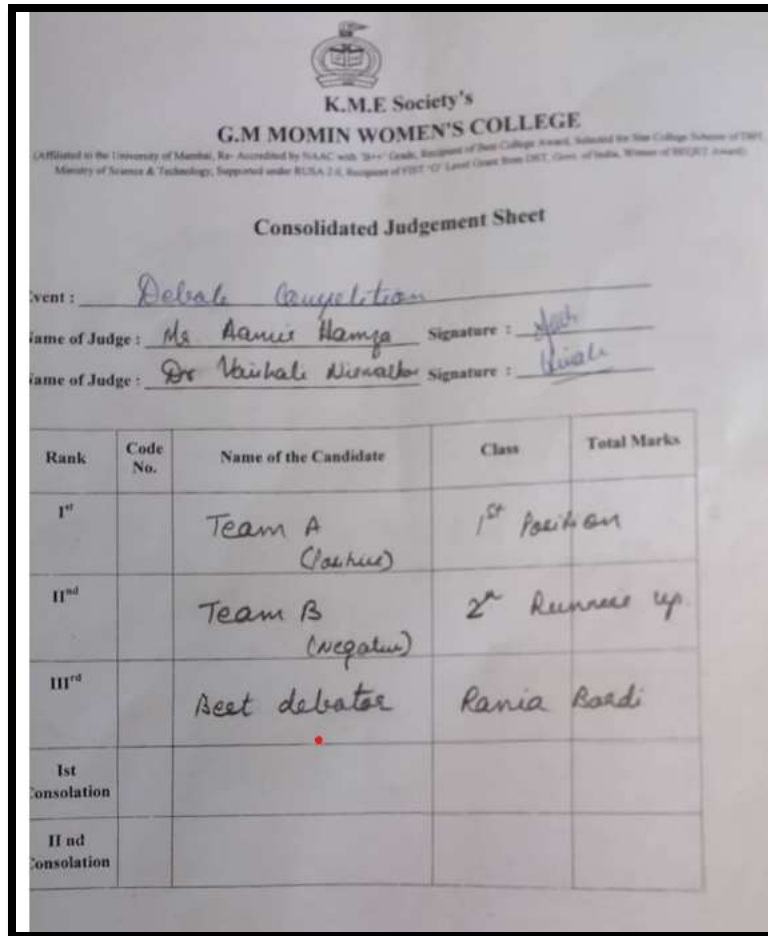 K.M.E Society's
G.M MOMIN WOMEN'S COLLEGE
(Affiliated to the University of Mumbai, Re- Accredited by NAAC with "B++" Grade, Recipient of Best College Award, Selected for Star College Scheme of DBT,
Ministry of Science & Technology, Supported under RUSA 2.0, Recipient of FIST "O" Level Grant from DST, Govt. of India, Winner of Award)
Consolidated Judgement Sheet
vent : Debate Competition
ame of Judge : Ms Aamir Hamza Signature :
ame of Judge : Dr Vaishali Signature :
Rank Code No. Name of the Candidate Class Total Marks
Ist Team A 1st Position
(Positive)
IInd Team B 2n Runners up.
(Negative)
IIIrd Best debator Rania Bardi
Ist
onsolation
II nd
onsolation